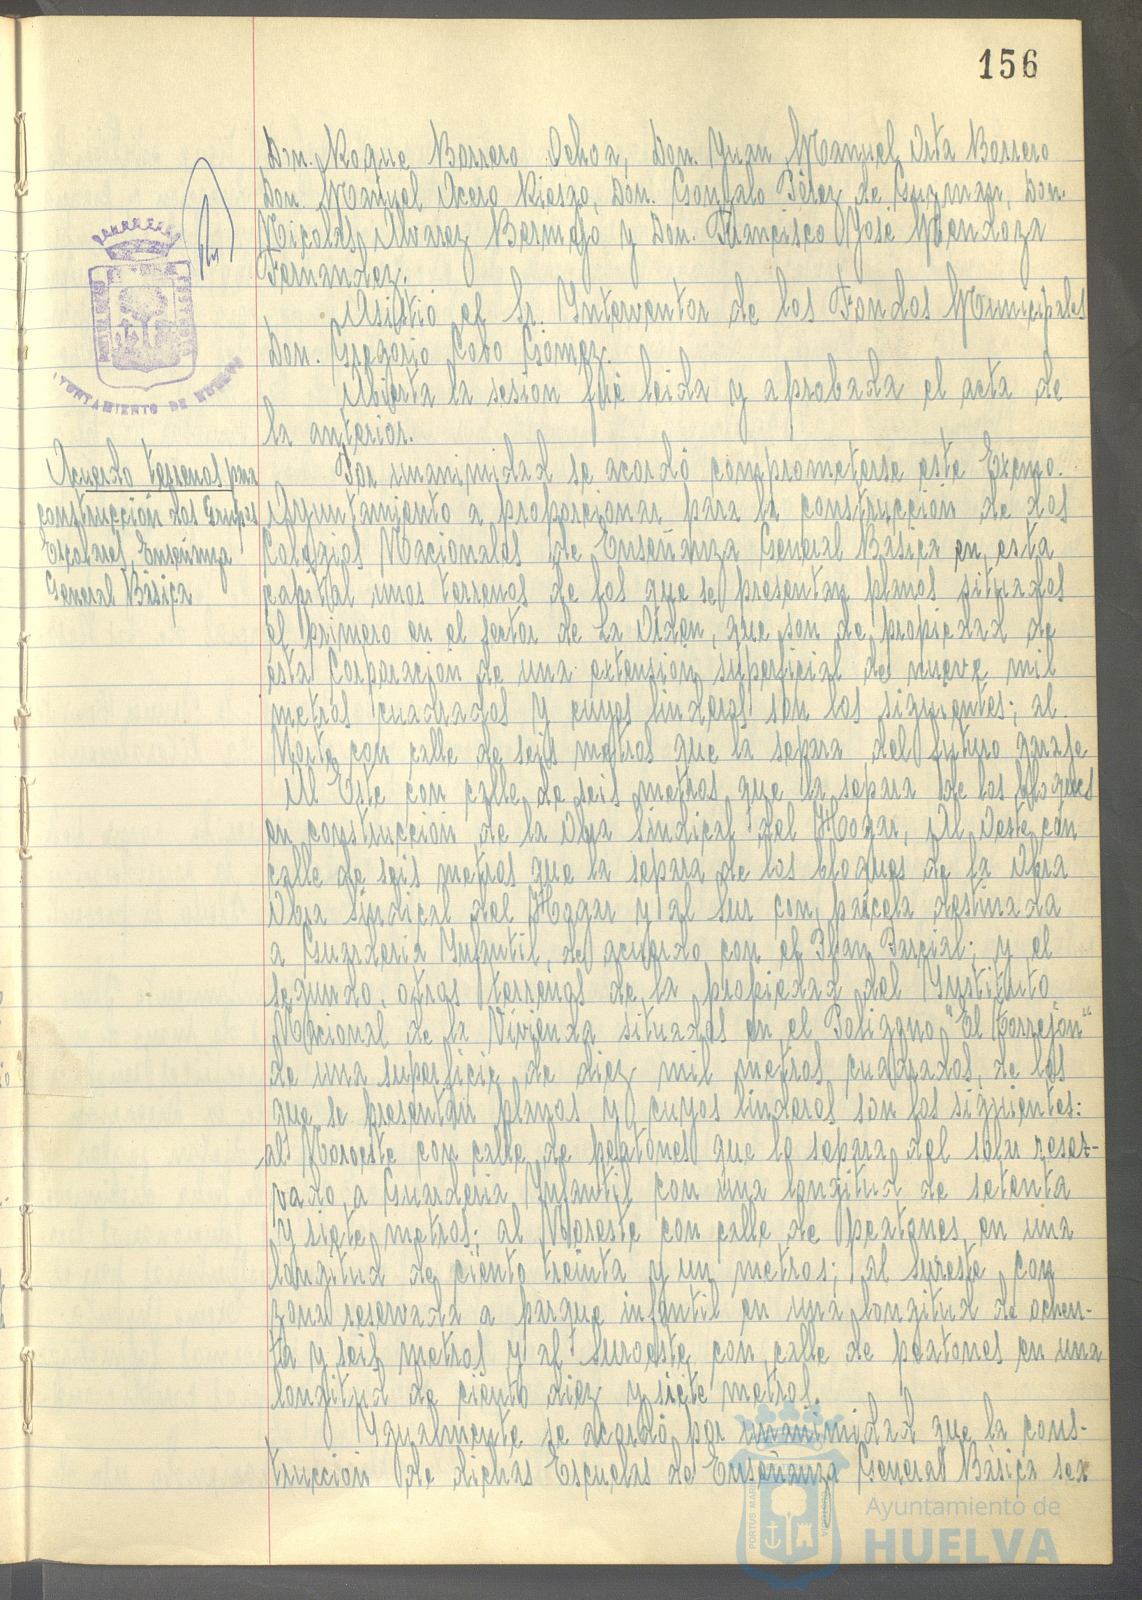 156
Don. Roque Barrero Ochoa, Don. Juan Manuel Orta Borrero
Don. Manuel Acero Riesgo, Don. Gonzalo Pérez de Guzman, Don.
Nicolas Alvarez Bermejo y Don. Francisco José Mendoza
Fernandez.
Asistió el Sr. Interventor de los Fondos Municipales
Don. Gregorio Cobo Gómez.
Abierta la sesion fué leida y aprobada el acta de
la anterior.
Acuerdo terrenos para
construcción dos Grupos
Escolares, Enseñanza
General Básica
Por unanimidad se acordó comprometerse este Excmo.
Ayuntamiento a proporcionar para la construccion de dos
Colegios Nacionales de Enseñanza General Básica en esta
capital unos terrenos de los que se presentan planos situados
el primero en el sector de La Orden, que son de propiedad de
esta Corporacion de una extension superficial de nueve mil
metros cuadrados y cuyos linderos son los siguientes; al
Norte con calle de seis metros que la separa del futuro garaje
Al Este con calle de seis metros que la separa de los bloques
en construccion de la Obra Sindical del Hogar, Al Oeste con
calle de seis metros que la separa de los bloques de la Obra
Obra Sindical del Hogar y al Sur con parcela destinada
a Guarderia Infantil, de acuerdo con el Plan Parcial; y el
segundo, otros terrenos de la propiedad del Instituto
Nacional de la Vivienda situados en el Poligono "El Torrejon"
de una superficie de diez mil metros cuadrados, de los
que se presentan planos y cuyos linderos son los siguientes:
al Noroeste con calle de peatones que lo separa del solar reser-
vado a Guarderia Infantil con una longitud de setenta
y siete metros; al Noreste con calle de peatones en una
longitud de ciento treinta y un metros; al sureste con
zona reservada a parque infantil en una longitud de ochen-
ta y seis metros y al Suroeste con calle de peatones en una
longitud de ciento diez y siete metros.
Igualmente se acordó por unanimidad que la cons-
truccion de dichas Escuelas de Enseñanza General Básica sea
AYUNTAMIENTO DE HUELVA
Ayuntamiento de
HUELVA